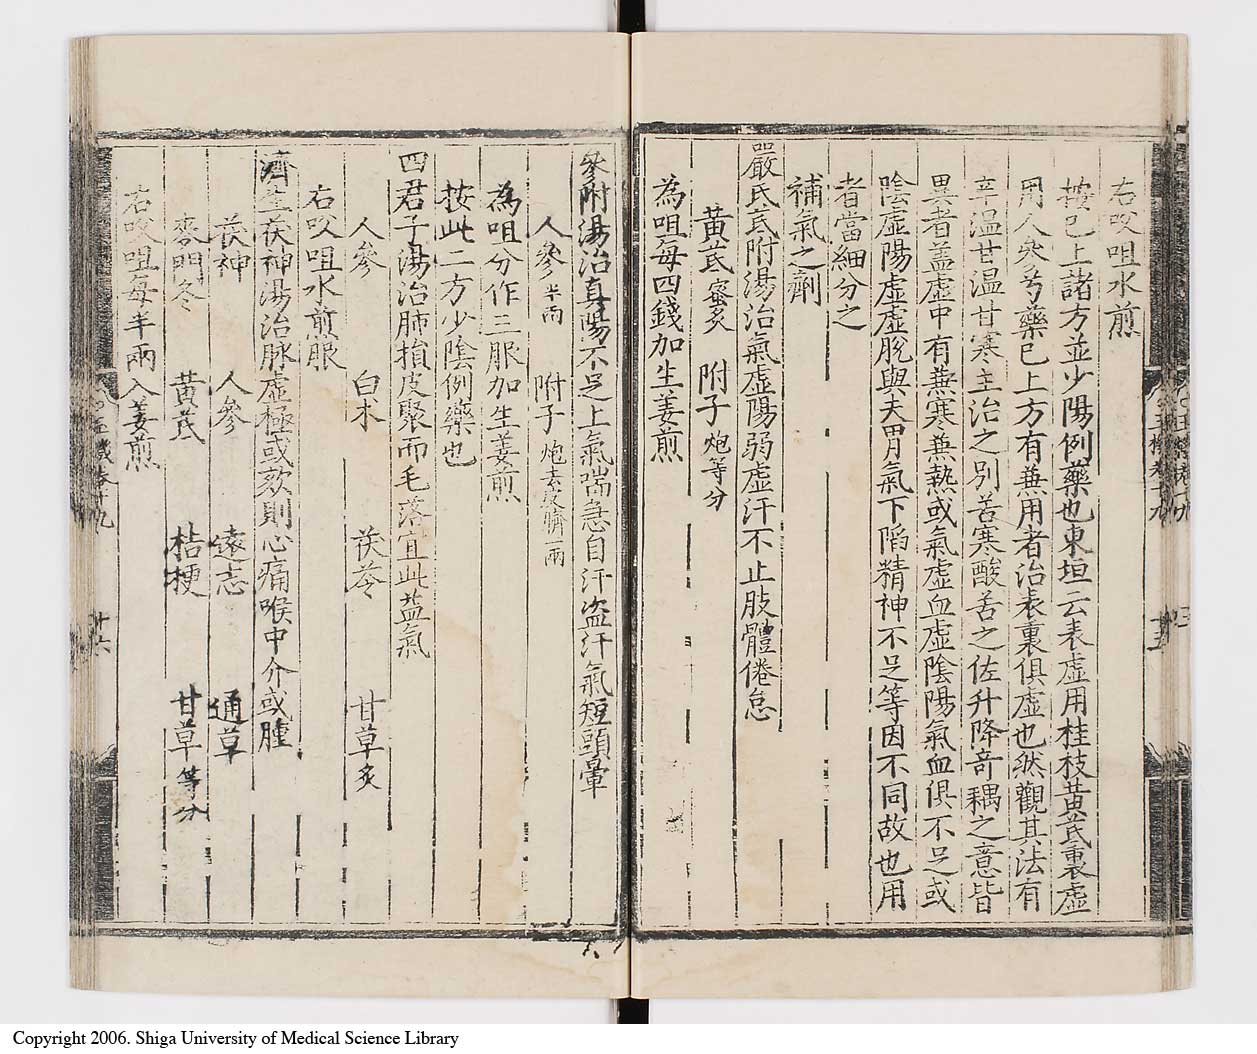 右㕮咀水煎
按已上諸方並少陽例藥也東垣云表虛用桂枝黃芪裏虛
用人參芍藥已上方有兼用者治表裏俱虛也然觀其法有
辛溫甘溫甘寒主治之別苦寒酸苦之佐升降奇耦之意皆
異者盖虛中有兼寒兼熱或氣虛血虛陰陽氣血俱不足或
陰虛陽虛虛脫與夫胃氣下陷精神不足等因不同故也用
者當細分之
補氣之劑
嚴氏芪附湯治氣虛陽弱虛汗不止肢體倦怠
黃芪 蜜炙 附子 炮等分
為咀每四錢加生姜煎
參附湯治真陽不足上氣喘急自汗盗汗氣短頭暈
人參 半兩 附子 炮去皮臍一兩
為咀分作三服加生姜煎
按此二方少陰例藥也
四君子湯治肺損皮聚而毛落宜此益氣
人參 白朮 茯苓 甘草 炙
右㕮咀水煎服
濟生茯神湯治脉虛極或欬則心痛喉中介或腫
茯神 人參 遠志 通草
麥門冬 黃芪 桔梗 甘草 等分
右㕮咀每半兩入姜煎
玉機卷十九
十六
Copyright 2006. Shiga University of Medical Science Library